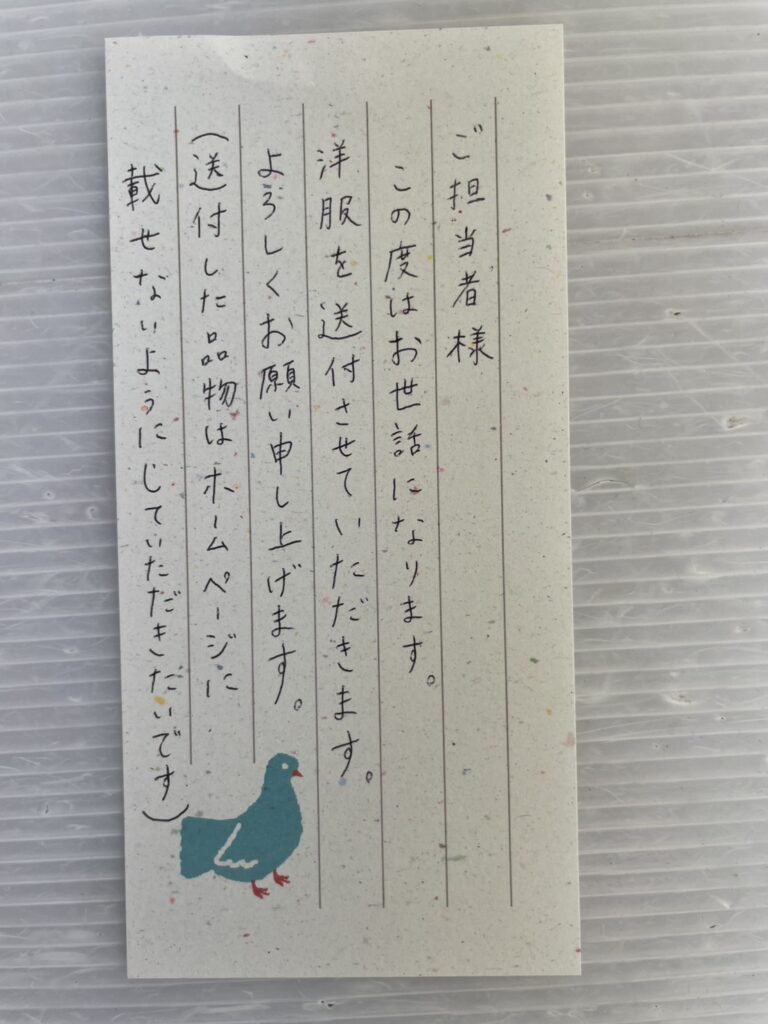 ご担当者様
この度はお世話になります。
洋服を送付させていただきます。
よろしくお願い申し上げます。
(送付した品物はホームページに
載せないようにしていただきたいです)